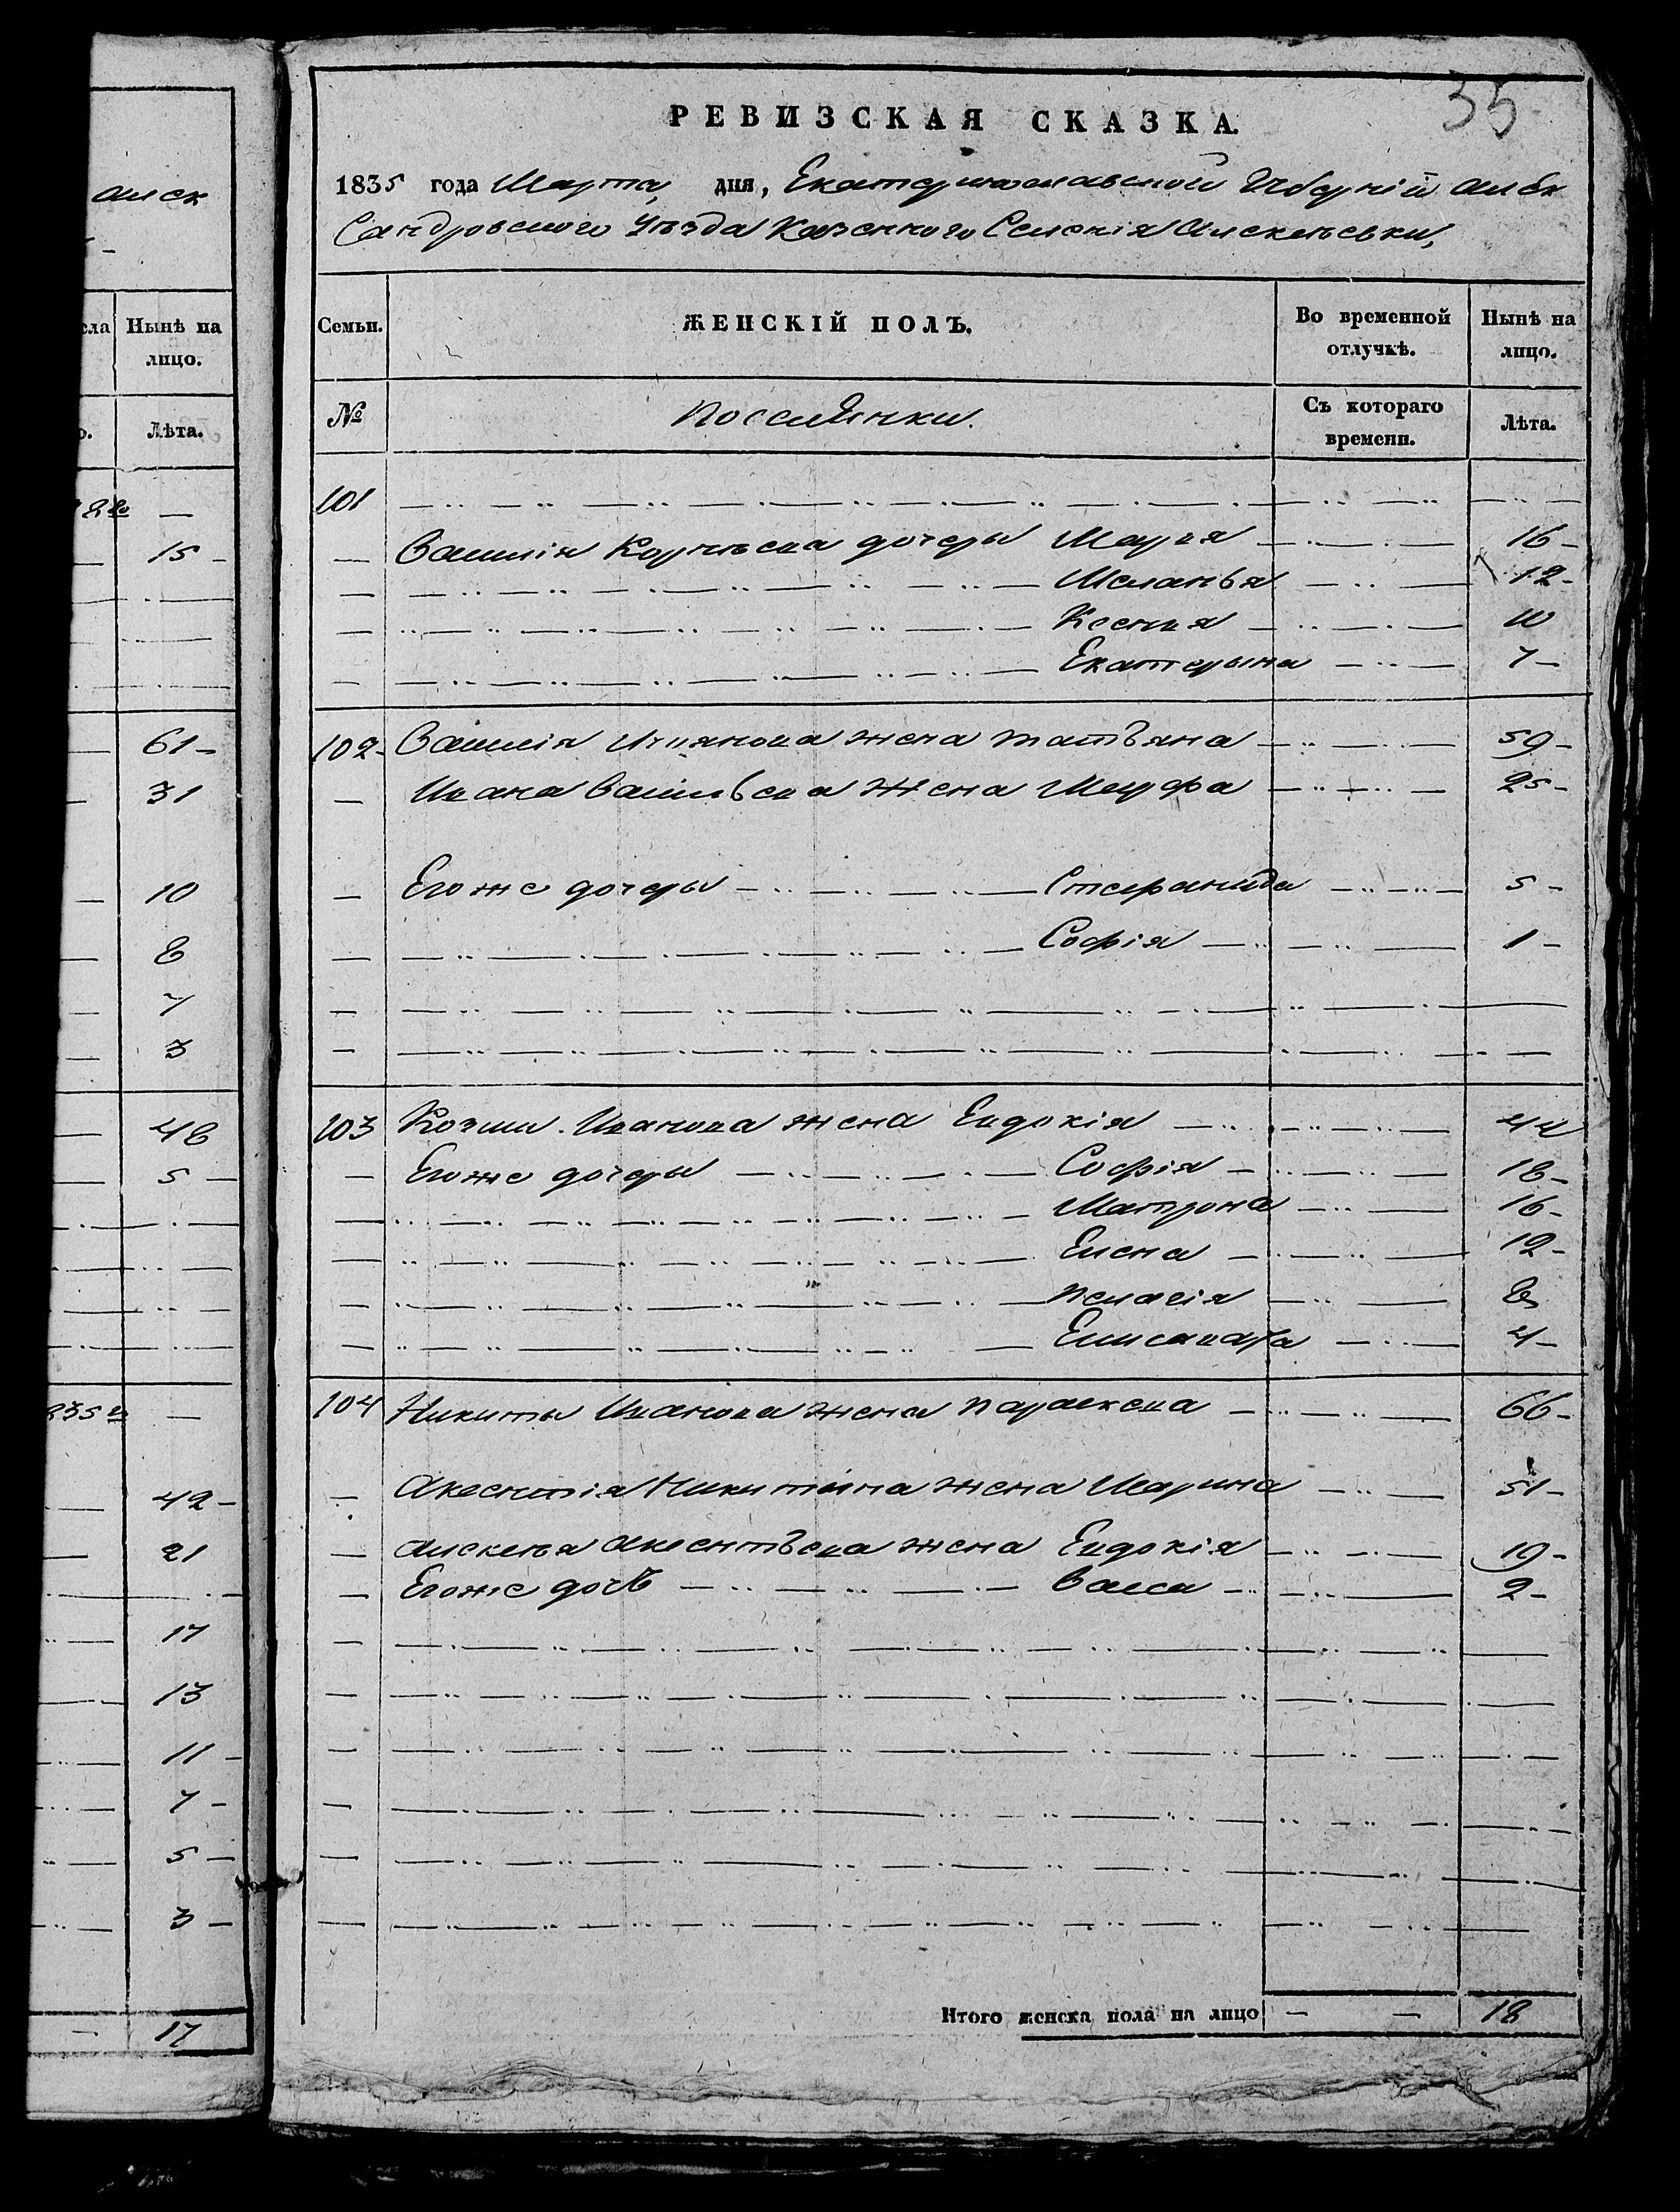 35
РЕВИЗСКАЯ СКАЗКА.
1835 года Марта, дня, Екатеринославской Губерніи Алек
Сандровского Уѣзда Казенного Селенія Алексѣевки,
Семьи.
ЖЕНСКІЙ ПОЛЪ.
Во временной отлучкѣ.
Нынѣ на лицо.
№
Поселянки.
Съ котораго времени.
Лѣта.
101
Василія Корнѣева дочеры Марія 16
Меланья 12
Ксения 10
Екатерына 7
102 Василія жена татьяна 59
Ивана Васильева жена Марфа 25
Егоже дочеры Стефанида 5
Софія 1
103 Козмы Иванова жена Евдокія 44
Егоже дочеры Софія 18
Матрона 16
Елена 12
Пелагія 8
Елисавета 4
104 Никиты Иванова жена Параскева 66
Аксентія Никитина жена Марина 51
Алексѣя Аксентьева жена Евдокія 19
Егоже дочь Васса 2
Итого женска пола на лицо — — 18
алек
сла
Нынѣ на лицо.
о.
Лѣта.
15
61
31
10
8
7
3
48
5
42
21
17
13
11
7
5
3
17